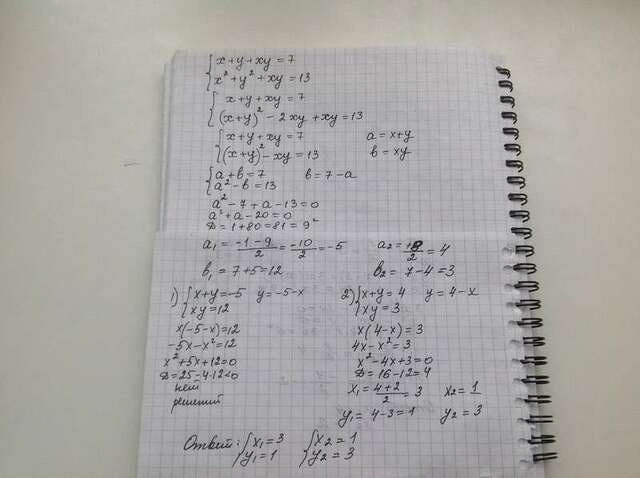 x+y+xy=7
x²+y²+xy=13
x+y+xy=7
(x+y)²-2xy+xy=13
x+y+xy=7 a=x+y
(x+y)²-xy=13 b=xy
a+b=7 b=7-a
a²-b=13
a²-7+a-13=0
a²+a-20=0
D=1+80=81=9²
a₁=(-1-9)/2=-10/2=-5 a₂=8/2=4
b₁=7+5=12 b₂=7-4=3
1) x+y=-5 y=-5-x
xy=12
x(-5-x)=12
-5x-x²=12
x²+5x+12=0
D=25-4·12<0
нет
решений
2) x+y=4 y=4-x
xy=3
x(4-x)=3
4x-x²=3
x²-4x+3=0
D=16-12=4
x₁=(4+2)/2=3 x₂=1
y₁=4-3=1 y₂=3
Ответ: x₁=3 x₂=1
y₁=1 y₂=3